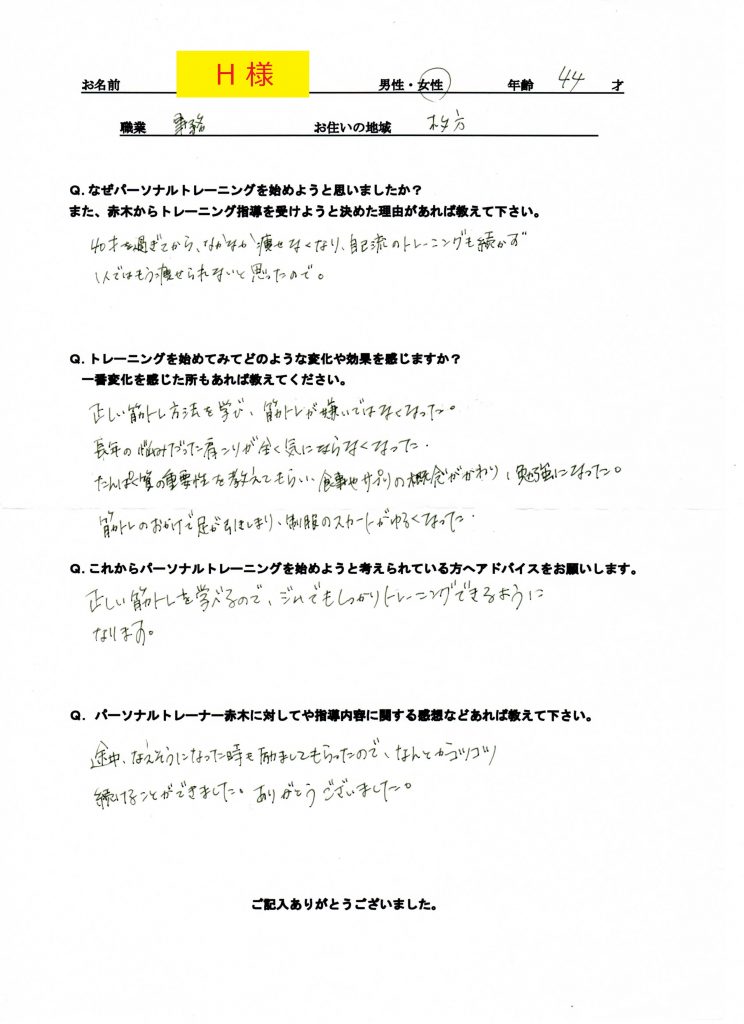 お名前 H 様 男性・女性 年齢 44 才
職業 事務 お住いの地域 枚方
Q. なぜパーソナルトレーニングを始めようと思いましたか？
また、赤木からトレーニング指導を受けようと決めた理由があれば教えて下さい。
40才を過ぎてから、なかなか痩せなくなり、自己流のトレーニングも続かず
1人ではもう痩せられないと思ったので。
Q. トレーニングを始めてみてどのような変化や効果を感じますか？
一番変化を感じた所もあれば教えてください。
正しい筋トレ方法を学び、筋トレが嫌いではなくなった。
長年の悩みだった肩こりが全く気にならなくなった.
たんぱく質の重要性を教えてもらい、食事やサプリの概念がかわり、勉強になった。
筋トレのおかげで足が引きしまり、制服のスカートがゆるくなった.
Q. これからパーソナルトレーニングを始めようと考えられている方へアドバイスをお願いします。
正しい筋トレを学べるので、ジムでもしっかりトレーニングできるように
なります。
Q. パーソナルトレーナー赤木に対してや指導内容に関する感想などあれば教えて下さい。
途中、なえそうになった時も励ましてもらったので、なんとかコツコツ
続けることができました。ありがとうございました。
ご記入ありがとうございました。